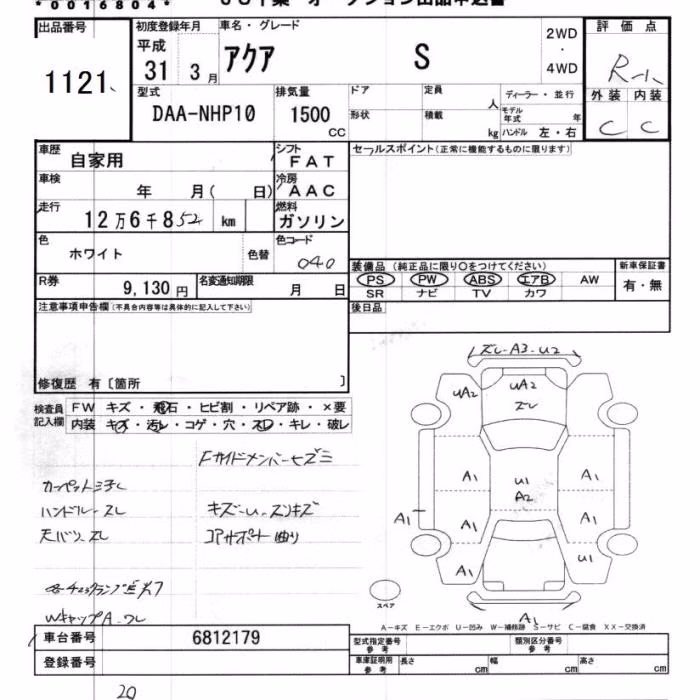 *0016804*
出品番号
1121
初度登録年月
平成
31 3月
車名・グレード
アクア S
2WD
・
4WD
評価点
R-1
外装 内装
C C
型式
DAA-NHP10
排気量
1500
CC
ドア
定員
人
ディーラー・並行
形状
積載
kg
モデル年式 年
ハンドル 左・右
車歴
自家用
シフト
FAT
車検
年 月( 日)
冷房
AAC
走行
12万6千852 km
燃料
ガソリン
セールスポイント(正常に機能するものに限ります)
色
ホワイト
色替
色コード
040
R券
9,130円
名変通知期限
月 日
装備品(純正品に限り○をつけてください)
PS PW ABS エアB AW
SR ナビ TV カワ
新車保証書
有・無
後日品
注意事項申告欄(不具合内容等は具体的に記入して下さい)
修復歴 有〔箇所 〕
検査員
記入欄
FW キズ・飛石・ヒビ割・リペア跡・×要
内装 キズ・汚レ・コゲ・穴・スレ・キレ・破レ
Fサイドメンバー
ハンドル-スレ
キズ-U-スリキズ
コアサポート曲り
ズレ-A3-U2
UA2
UA2
ズレ
A1
U1
A2
A1
A1
A1
A1
A1
U1
A1
スペア
WキャップA-ワレ
A-キズ E-エクボ U-凹み W-補修跡 S-サビ C-腐食 XX-交換済
車台番号
6812179
登録番号
型式指定番号
参考
類別区分番号
参考
車庫証明用
参考
長さ cm 幅 cm 高さ cm
20